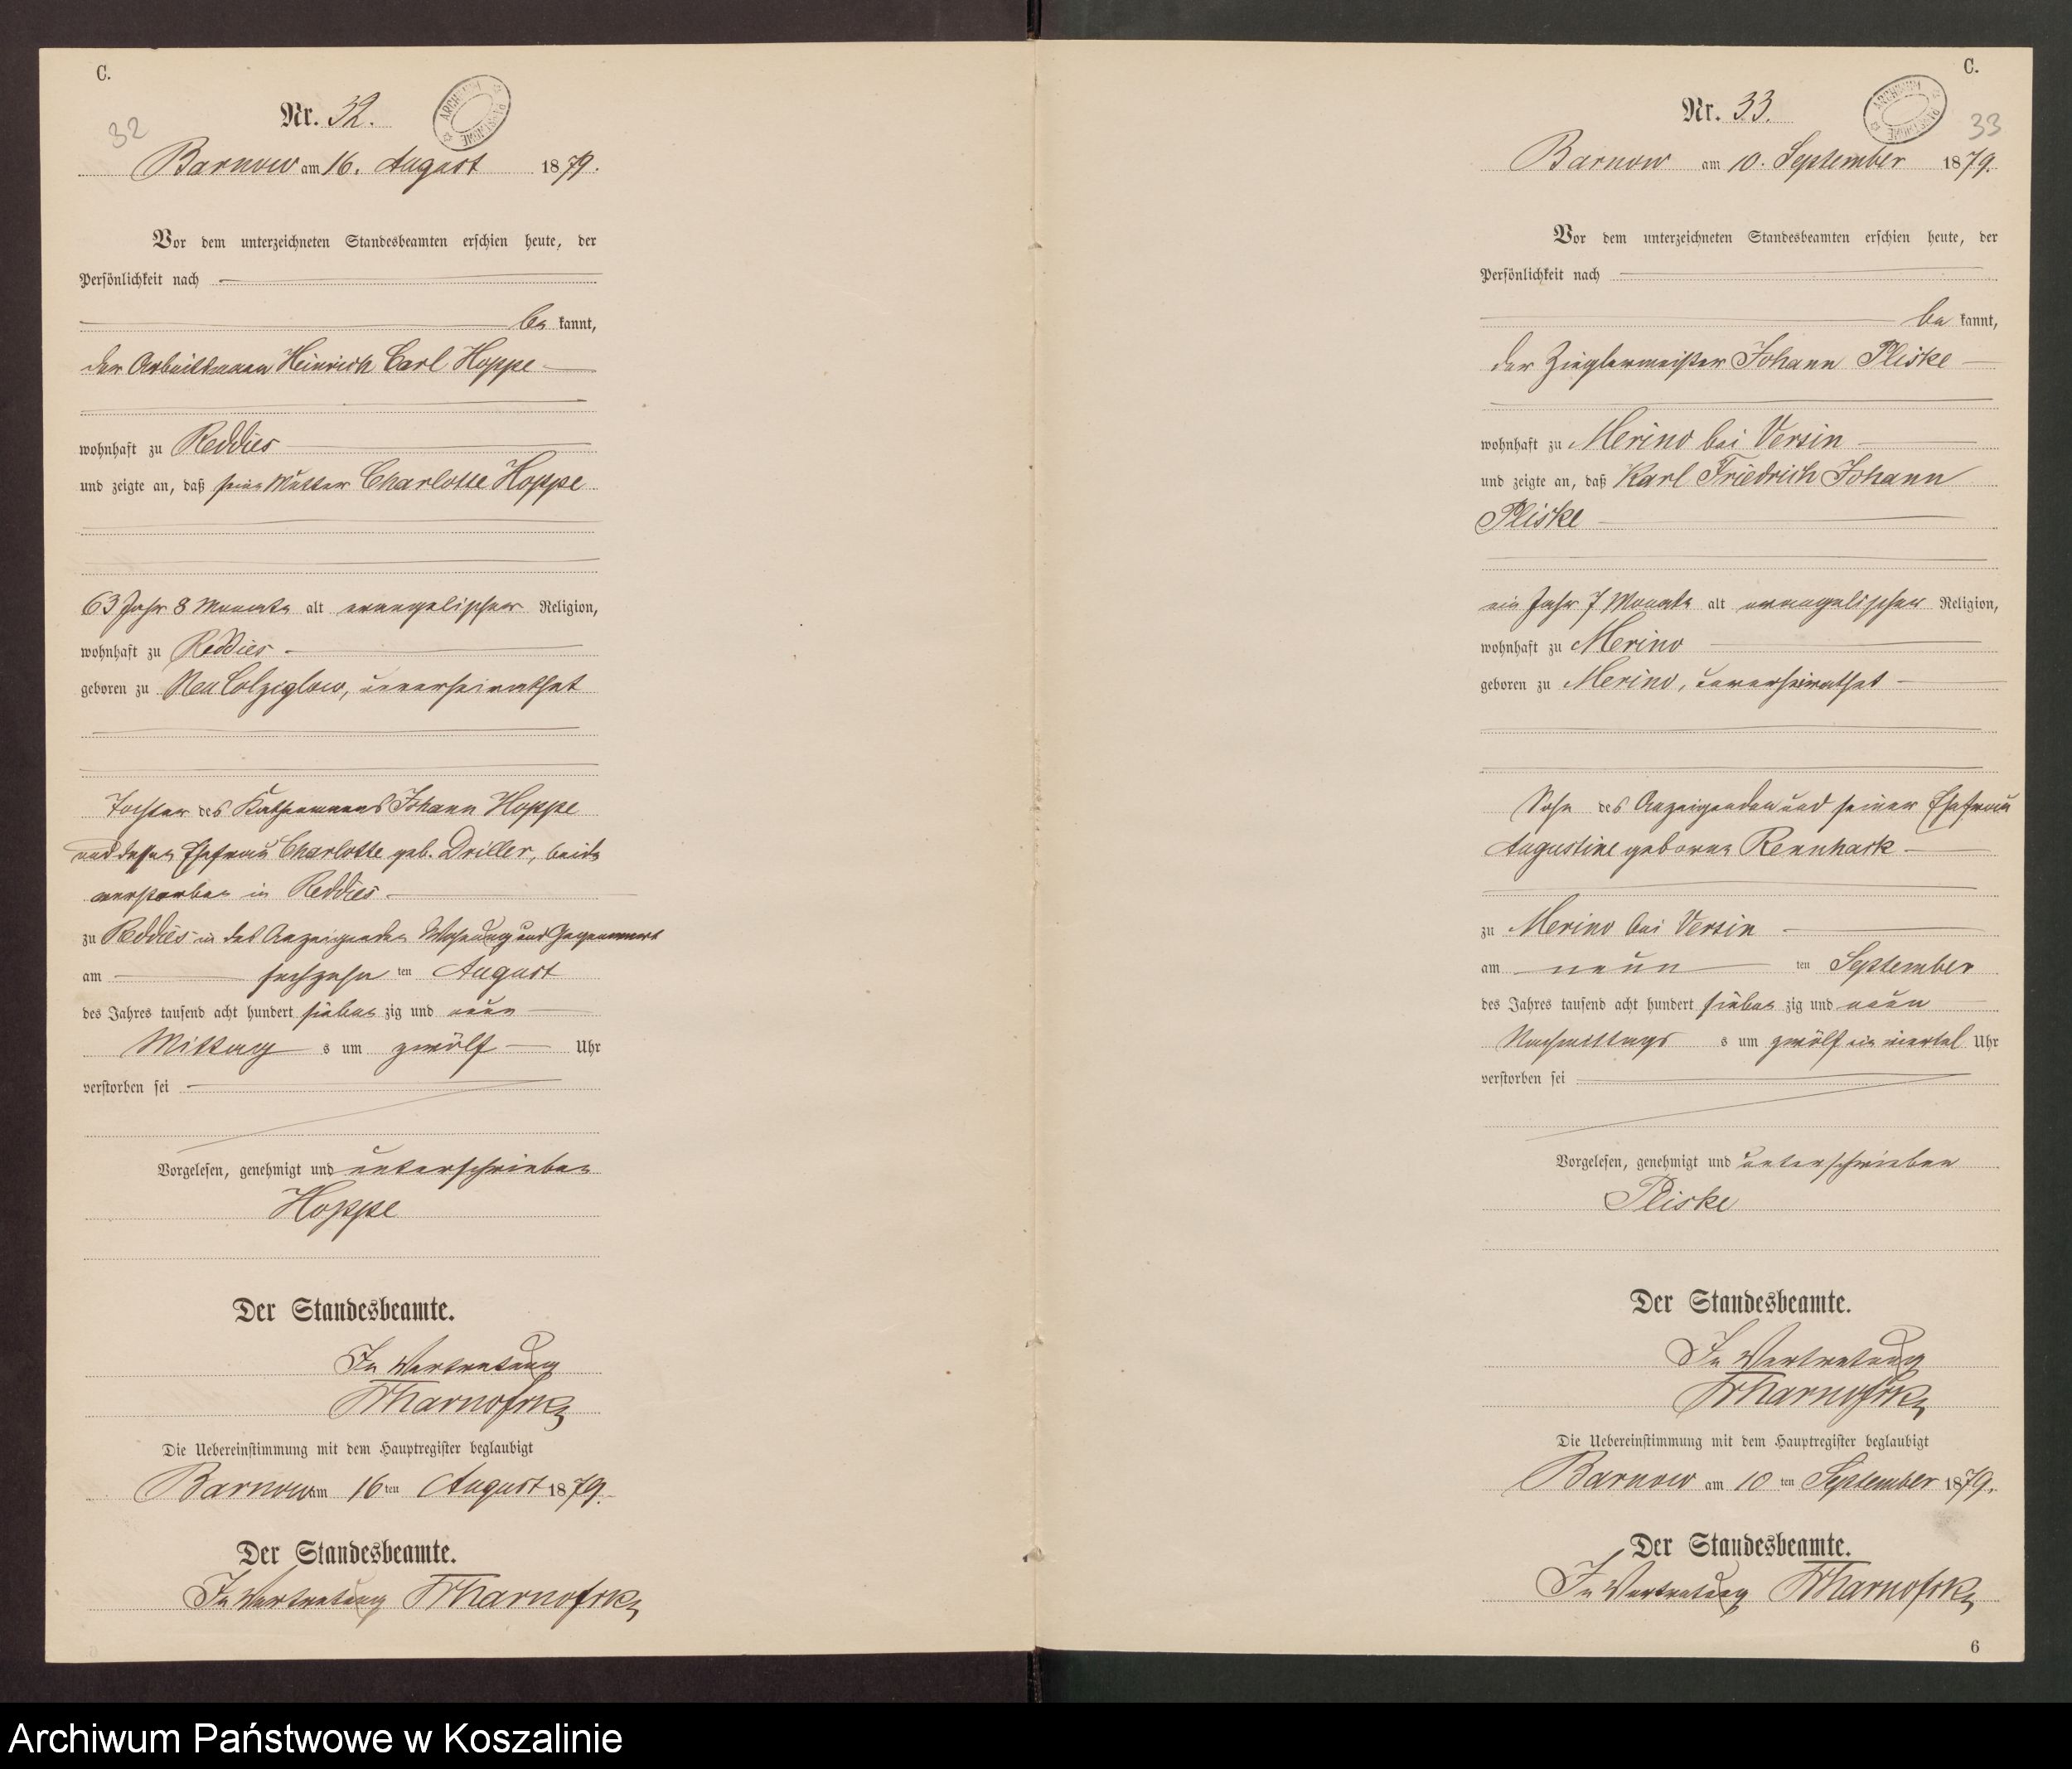 C.
32
Nr. 32.
ARCHIWUM PAŃSTWOWE
Barnow am 16. August 1879.
Vor dem unterzeichneten Standesbeamten erschien heute, der
Persönlichkeit nach
be kannt,
der Arbeitsmann Heinrich Carl Hoppe
wohnhaft zu Reddies
und zeigte an, daß seine Mutter Charlotte Hoppe
63 Jahr 8 Monate alt evangelischer Religion,
wohnhaft zu Reddies
geboren zu Neu Colziglow, unverheirathet
Tochter des Kathenmanns Johann Hoppe
und dessen Ehefrau Charlotte geb. Driller, beide
verstorben in Reddies
zu Reddies in des Anzeigenden Wohnung und Gegenwart
am sechszehn ten August
des Jahres tausend acht hundert sieben zig und neun
Mittag s um zwölf Uhr
verstorben sei
Vorgelesen, genehmigt und unterschrieben
Hoppe
Der Standesbeamte.
In Vertretung
Die Uebereinstimmung mit dem Hauptregister beglaubigt
Barnow am 16 ten August 1879.
Der Standesbeamte.
In Vertretung
C.
33
Nr. 33.
ARCHIWUM PAŃSTWOWE
Barnow am 10. September 1879.
Vor dem unterzeichneten Standesbeamten erschien heute, der
Persönlichkeit nach
be kannt,
der Zieglermeister Johann Pliske
wohnhaft zu Merino bei Versin
und zeigte an, daß Karl Friedrich Johann
Pliske
ein Jahr 7 Monate alt evangelischer Religion,
wohnhaft zu Merino
geboren zu Merino, unverheirathet
Sohn des Anzeigenden und seiner Ehefrau
Augustine geborne Rennhack
zu Merino bei Versin
am neun ten September
des Jahres tausend acht hundert sieben zig und neun
Nachmittags s um zwölf ein viertel Uhr
verstorben sei
Vorgelesen, genehmigt und unterschrieben
Pliske
Der Standesbeamte.
In Vertretung
Die Uebereinstimmung mit dem Hauptregister beglaubigt
Barnow am 10 ten September 1879.
Der Standesbeamte.
In Vertretung
6
Archiwum Państwowe w Koszalinie